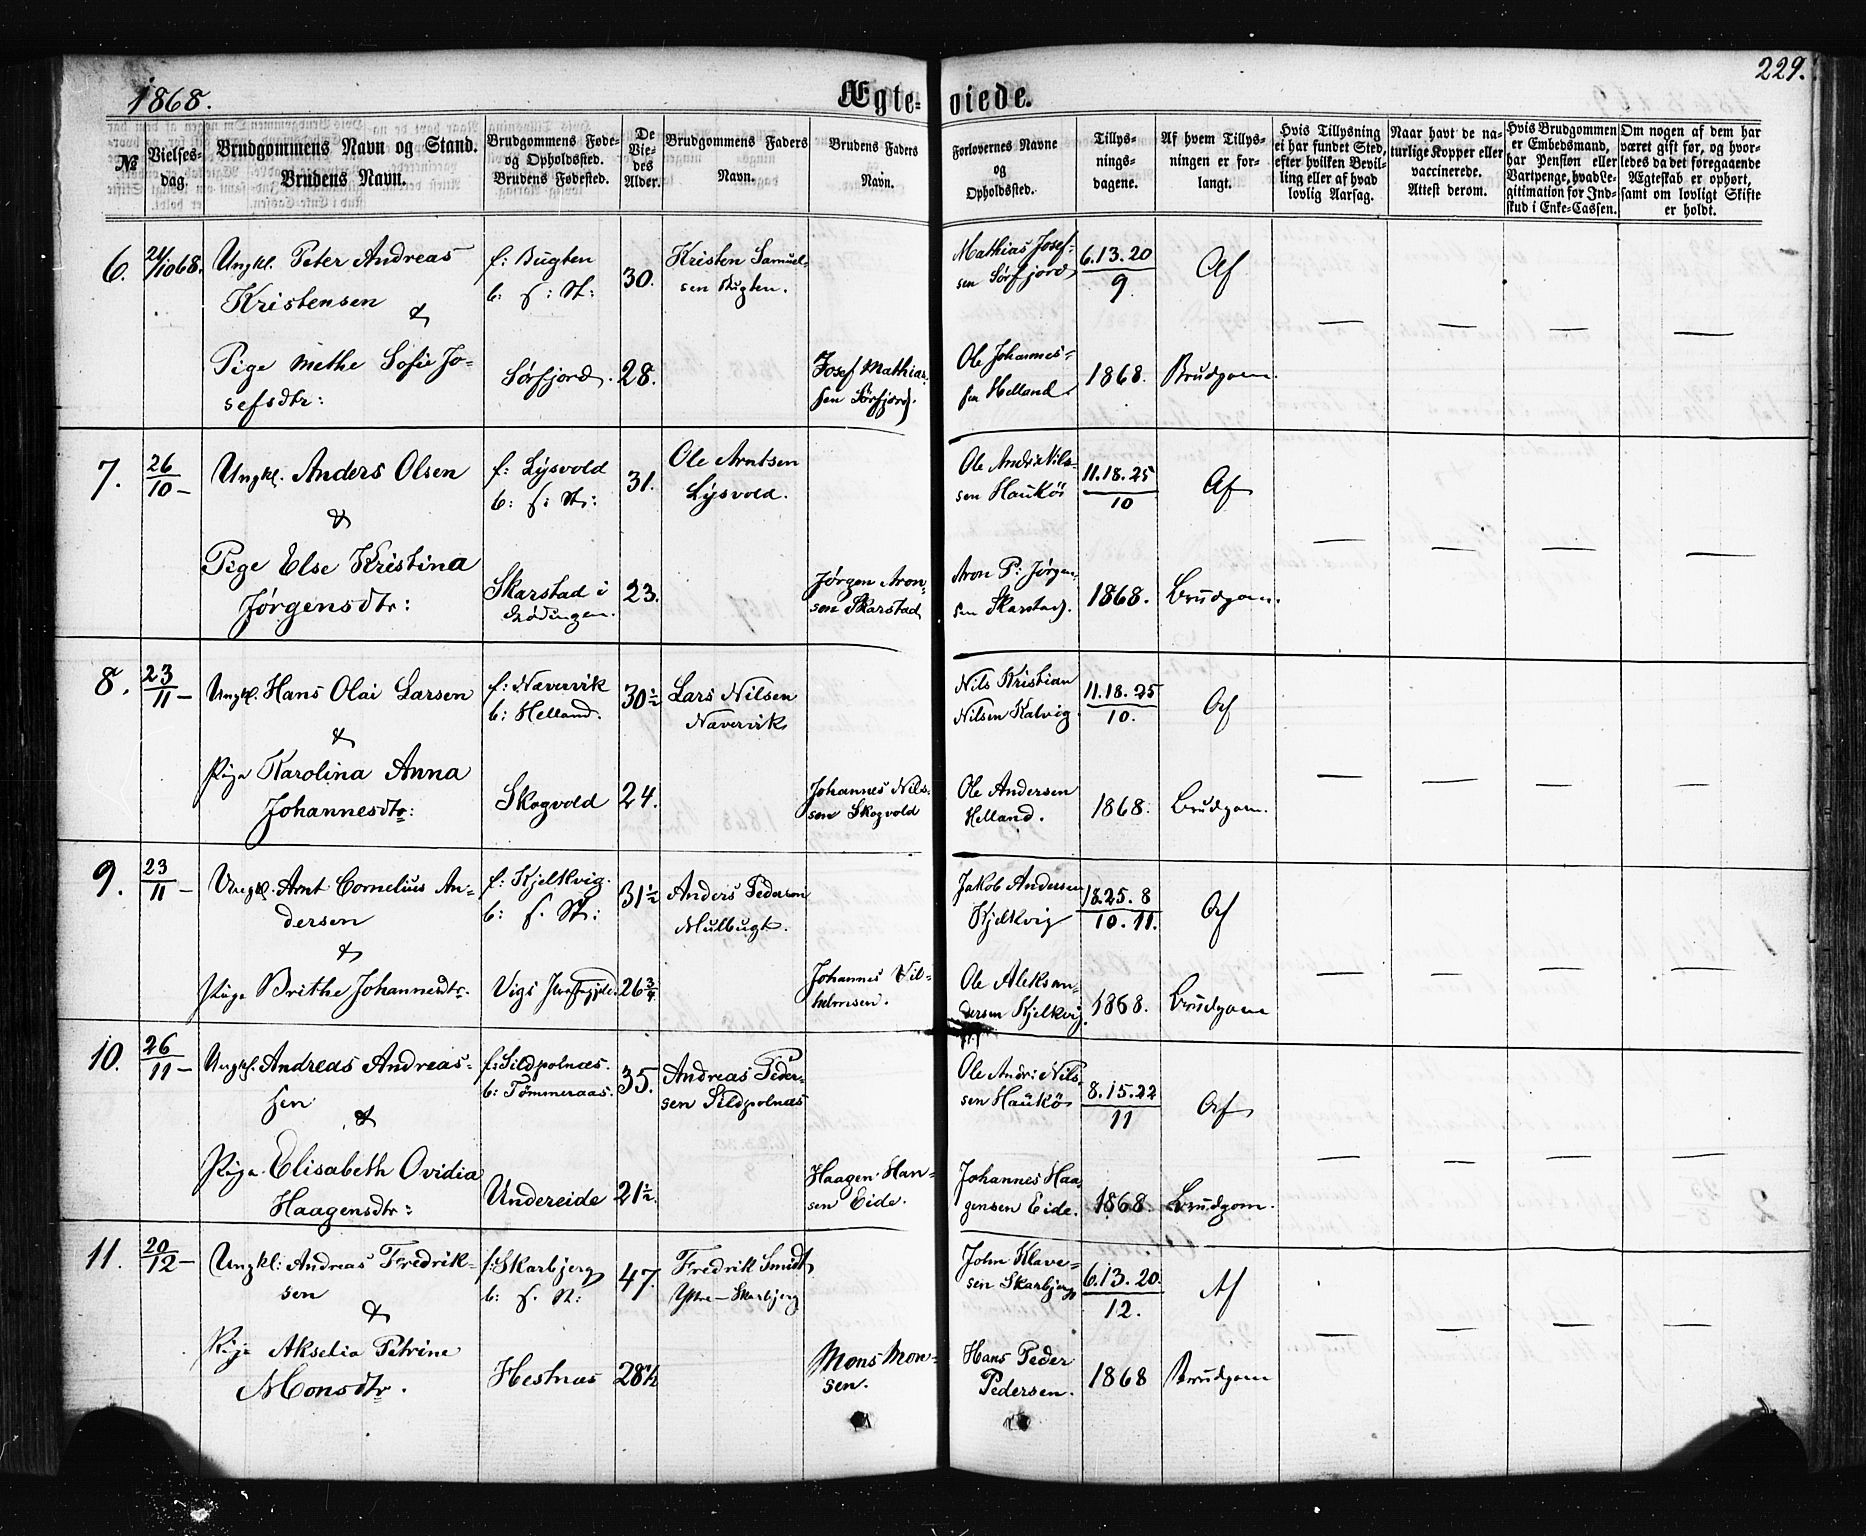 1868.
Ægte-viede.
229.
№
Vielses-dag.
Brudgommens Navn og Stand.
Brudens Navn.
Brudgommens Føde-
og Opholdssted.
Brudens Fødested.
De
Vie-
des
Alder.
Brudgommens Faders
Navn.
Brudens Faders
Navn.
Forlovernes Navne
og
Opholdssted.
Tillys-
nings-
dagene.
Af hvem Tillys-
ningen er for-
langt.
Hvis Tillysning
ei har fundet Sted,
efter hvilken Bevil-
ling eller af hvad
lovlig Aarsag.
Naar havt de na-
turlige Kopper eller
vaccinerede.
Attest derom.
Hvis Brudgommen
er Embedsmand,
har Pension eller
Vartpenge, hvad Le-
gitimation for Ind-
skud i Enke-Cassen.
Om nogen af dem har
været gift for, og hvor-
ledes da det foregaaende
Ægteskab er ophort,
samt om lovligt Skifte
er holdt.
6.
24/1068.
Ungkl. Peter Andreas
Kristensen
&
Pige Methe Sofie Jo-
sefsdtr:
f: Bugten
b: f: St:
Sørfjord.
30.
28.
Kristen Samuel-
sen Bugten.
Josef Mathias-
sen Sørfjord.
Mathias Josef-
sen Sørfjord
Ole Johannes-
sen Helland.
6.13.20
9
1868.
Af
Brudgom.
7.
26
10 –
Ungkl. Anders Olsen
&
Pige Else Kristina
Jørgensdtr:
f: Lysvold
b: f: St:
Skarstad i
Lødingen.
31.
23.
Ole Arntsen
Lysvold.
Jørgen Aron-
sen Skarstad
Ole Andr: Nils-
sen Haukö
Aron P: Jørgen-
sen Skarstad.
11.18.25
10
1868.
Af
Brudgom.
8.
23
11 –
Ungkl. Hans Olai Larsen
&
Pige Karolina Anna
Johannesdtr:
f: Navervik
b: Helland.
Skogvold
30½
24.
Lars Nilsen
Navervik
Johannes Nils-
sen Skogvold
Nils Kristian
Nilsen Kalvig.
Ole Andersen
Helland.
11.18.25
10.
1868.
Af
Brudgom.
9.
23
11 –
Ungkl. Arnt Cornelius An-
dersen
&
Pige Brithe Johannesdtr.
f: Kjelkvig.
b: f. St:
Vigs
31½
26¾
Anders Pedersen
Mulbugt.
Johannes Vil-
helmsen.
Jakob Andersen
Kjelkvig
Ole Aleksan-
dersen Kjelkvig.
18.25.8
10.11.
1868.
Af
Brudgom
10.
26
11 –
Ungkl. Andreas Andreas-
sen
&
Pige Elisabeth Ovidia
Haagensdtr:
f: Sildpolnæs.
b: Tømmeraas.
Undereide
35.
21½.
Andreas Peder-
sen Sildpolnæs
Haagen Han-
sen Eide.
Ole Andr: Nils-
sen Haukö
Johannes Haa-
gensen Eide.
8.15.22
11
1868.
Af
Brudgom.
11.
20
12 –
Ungkl: Andreas Fredrik-
sen
&
Pige Akselia Petrine
Monsdtr.
f: Skarbjerg
b: f. St:
Hestnæs
47.
28½
Fredrik Smidt
Ytre-Skarbjerg
Mons Mon-
sen.
John Klave-
sen Skarbjerg
Hans Peder
Pedersen.
6.13.20.
12.
1868
Af
Brudgom